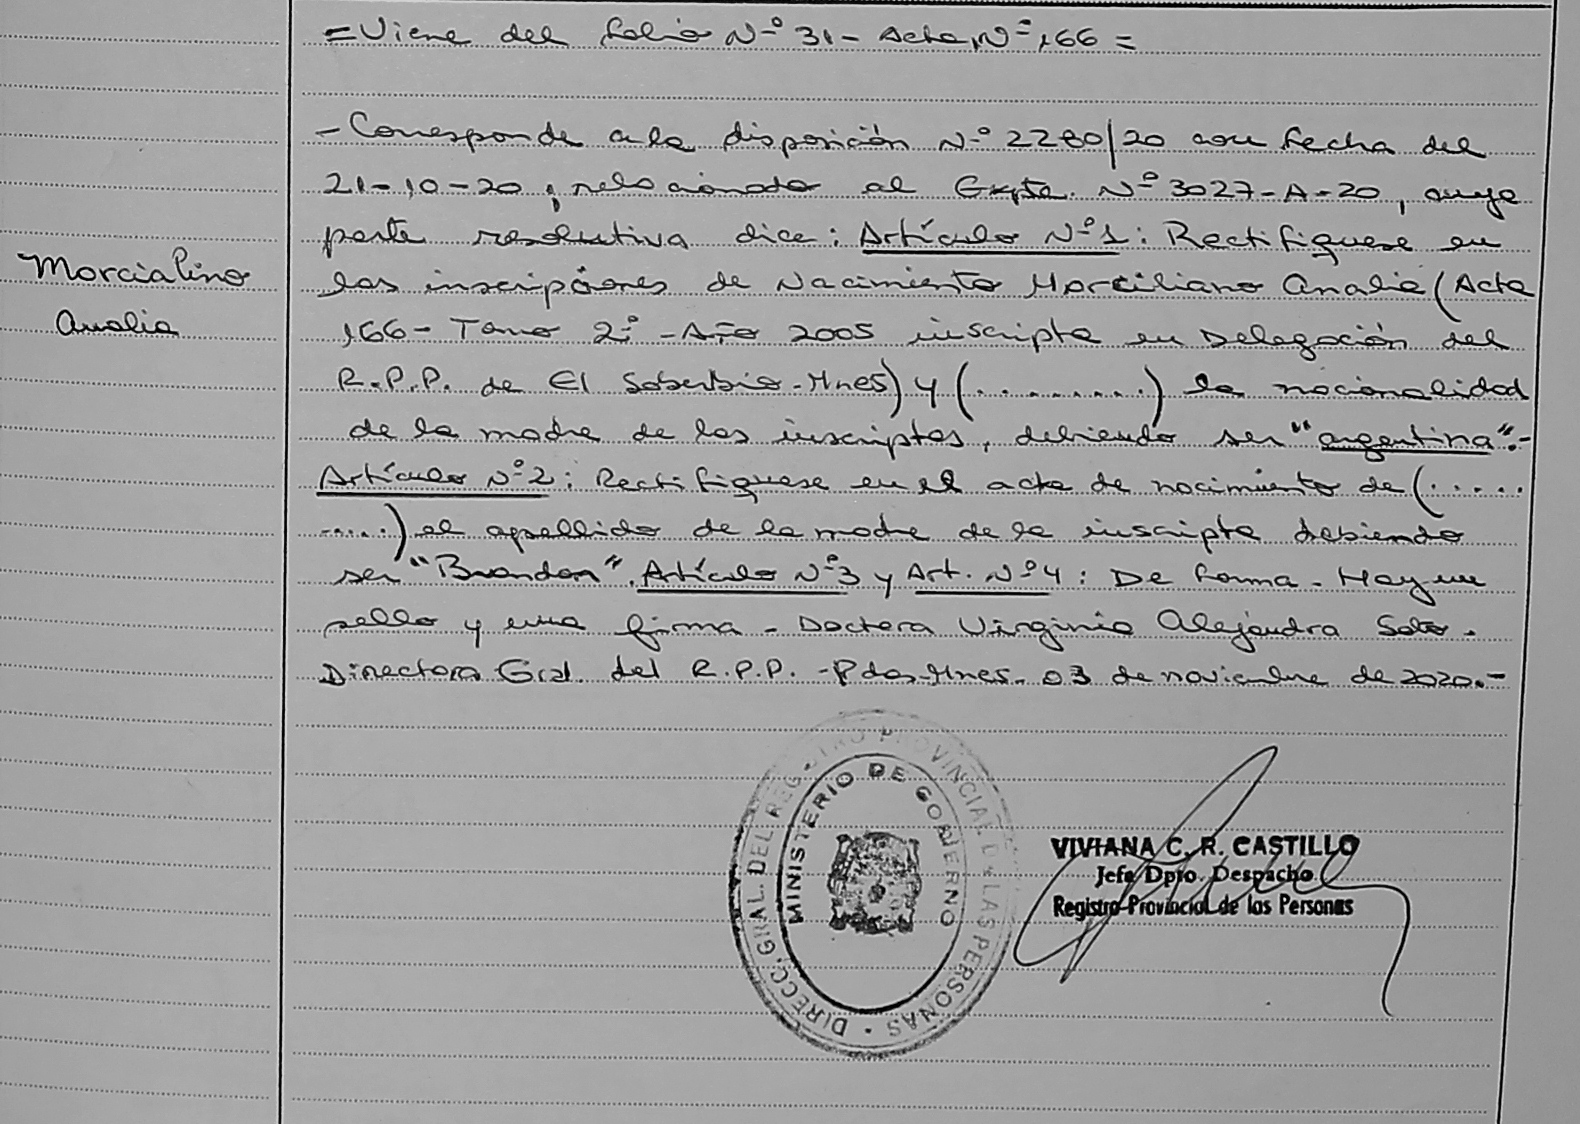 = Viene del folio Nº 31 - Acta Nº 166 =
- Corresponde a la disposición Nº 2280/20 con fecha del
21-10-20, relacionado al Expte. Nº 3027-A-20, cuya
parte resolutiva dice: Artículo Nº 1: Rectifiquese en
las inscripciones de Nacimiento Marciliano Analia (Acta
166 - Tomo 2º - Año 2005 inscripta en Delegación del
R.P.P. de El Soberbio - Mnes) y (........) la nacionalidad
de la madre de los inscriptos, debiendo ser "argentina".-
Artículo Nº 2: Rectifiquese en el acta de nacimiento de (.....
.....) el apellido de la madre de la inscripta debiendo
ser "Brandan". Artículo Nº 3 y Art. Nº 4: De forma - Hay un
sello y una firma - Doctora Virginia Alejandra Soto.
Directora Gral. del R.P.P. - Pdas - Mnes. 03 de noviembre de 2020.-
Morcialino
Analia
DIRECC. GRAL. DEL REGISTRO PROVINCIAL DE LAS PERSONAS
MINISTERIO DE GOBIERNO
VIVIANA C. R. CASTILLO
Jefe Dpto. Despacho
Registro Provincial de las Personas